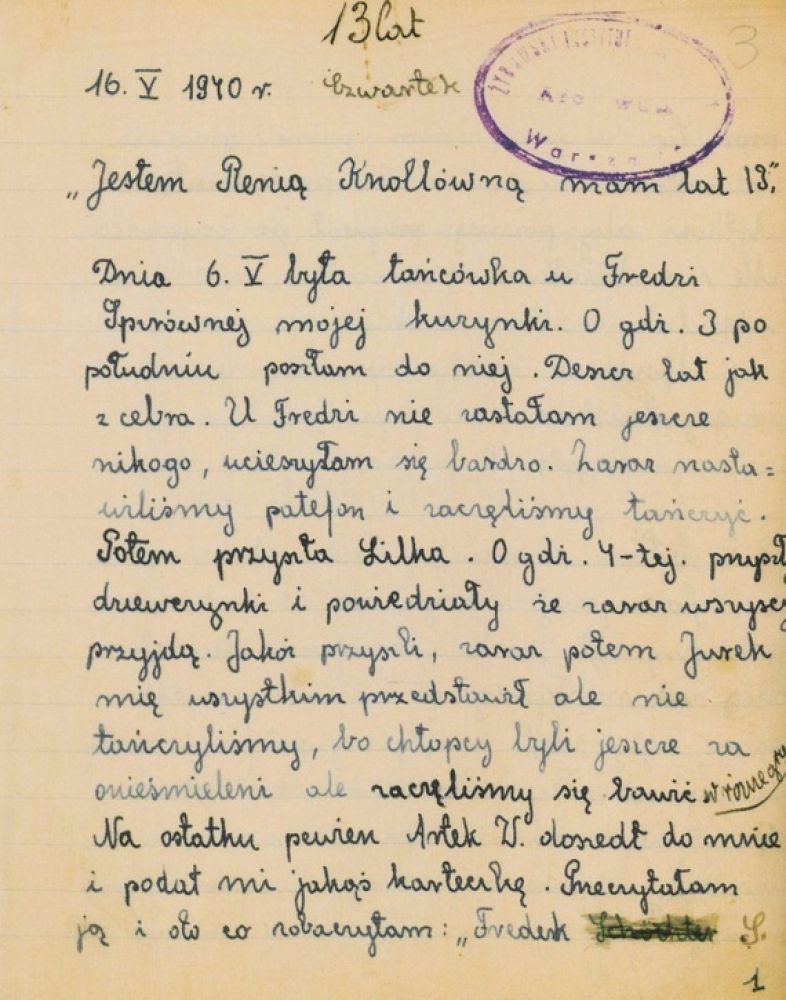 13 lat
3
16. V 1940 r. Czwartek
ŻYDOWSKI INSTYTUT
Archiwum
Warszawa
„Jestem Renią Knollówną mam lat 13."
Dnia 6. V była tańcówka u Fredzi
mojej kuzynki. O gdź. 3 po
południu poszłam do niej. Deszcz lał jak
z cebra. U Fredzi nie zastałam jeszcze
nikogo, ucieszyłam się bardzo. Zaraz nasta=
wiliśmy patefon i zaczęliśmy tańczyć.
Potem przyszła Lilka. O gdź. 4-tej. przyszły
dziewczynki i powiedziały że zaraz wszyscy
przyjdą. Jakóż przyszli, zaraz potem Jurek
mię wszystkim przedstawił ale nie
tańczyliśmy, bo chłopcy byli jeszcze za
onieśmieleni ale zaczęliśmy się bawić w różne gry
Na ostatku pewien Artek W. doszedł do mnie
i podał mi jakąś karteczkę. Przeczytałam
ją i oto co zobaczyłam: „Fredek S.
1